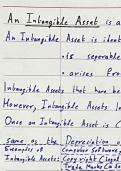 An Intangible Asset is a
An Intangible Asset is ident
• is seperable
• arises Fro
Intangible Assets that have be
However, Intangible Assets
Once an Intangible Asset is
same as the Depreciation o
Examples of Computer Software,
Intangible Assets: Copyright
Trade Marks